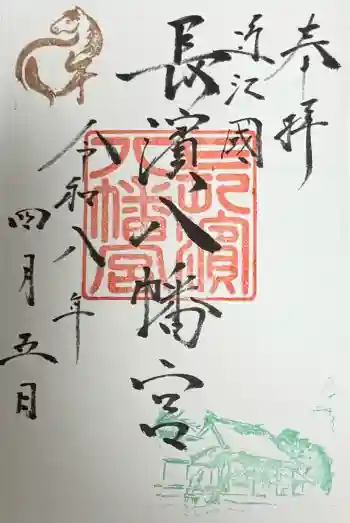 奉拝
近江國
長濱八幡宮
令和八年
四月五日
長濱八幡宮